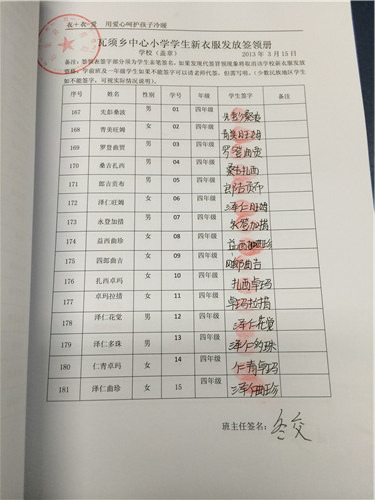 衣+衣=爱 用爱心呵护孩子冷暖
瓦须乡中心小学学生新衣服发放签领册
学校(盖章) 2013年3月15日
备注:签领衣签字部分为学生亲笔签名,如果发现代签冒领现象将取消该学校新衣服发放
资格,学前班及一年级学生如果不能签字可以请老师代签,但需写明。(少数民族地区学生
如不能签字,可视实际情况说明)
序号 姓名 性别 学号 级 学生签字 备注
167 先彭桑波 男 01 四年级 先彭桑波
168 青美旺姆 女 02 四年级 青美旺姆
169 罗登曲贺 男 03 四年级 罗登曲贡
170 桑吉扎西 男 04 四年级 桑吉扎西
171 郎吉贡布 男 05 四年级 郎吉贡布
172 泽仁旺姆 女 06 四年级 泽仁旺姆
173 永登加措 男 07 四年级 永登加措
174 益西曲珍 女 08 四年级 益西曲珍
175 四郎曲吉 女 09 四年级 四郎曲吉
176 扎西卓玛 女 10 四年级 扎西卓玛
177 卓玛拉措 女 11 四年级 卓玛拉措
178 泽仁花觉 男 12 四年级 泽仁花觉
179 泽仁多珠 男 13 四年级 泽仁多珠
180 仁青卓玛 女 14 四年级 仁青卓玛
181 泽仁曲珍 女 15 四年级 泽仁曲珍
班主任签名: